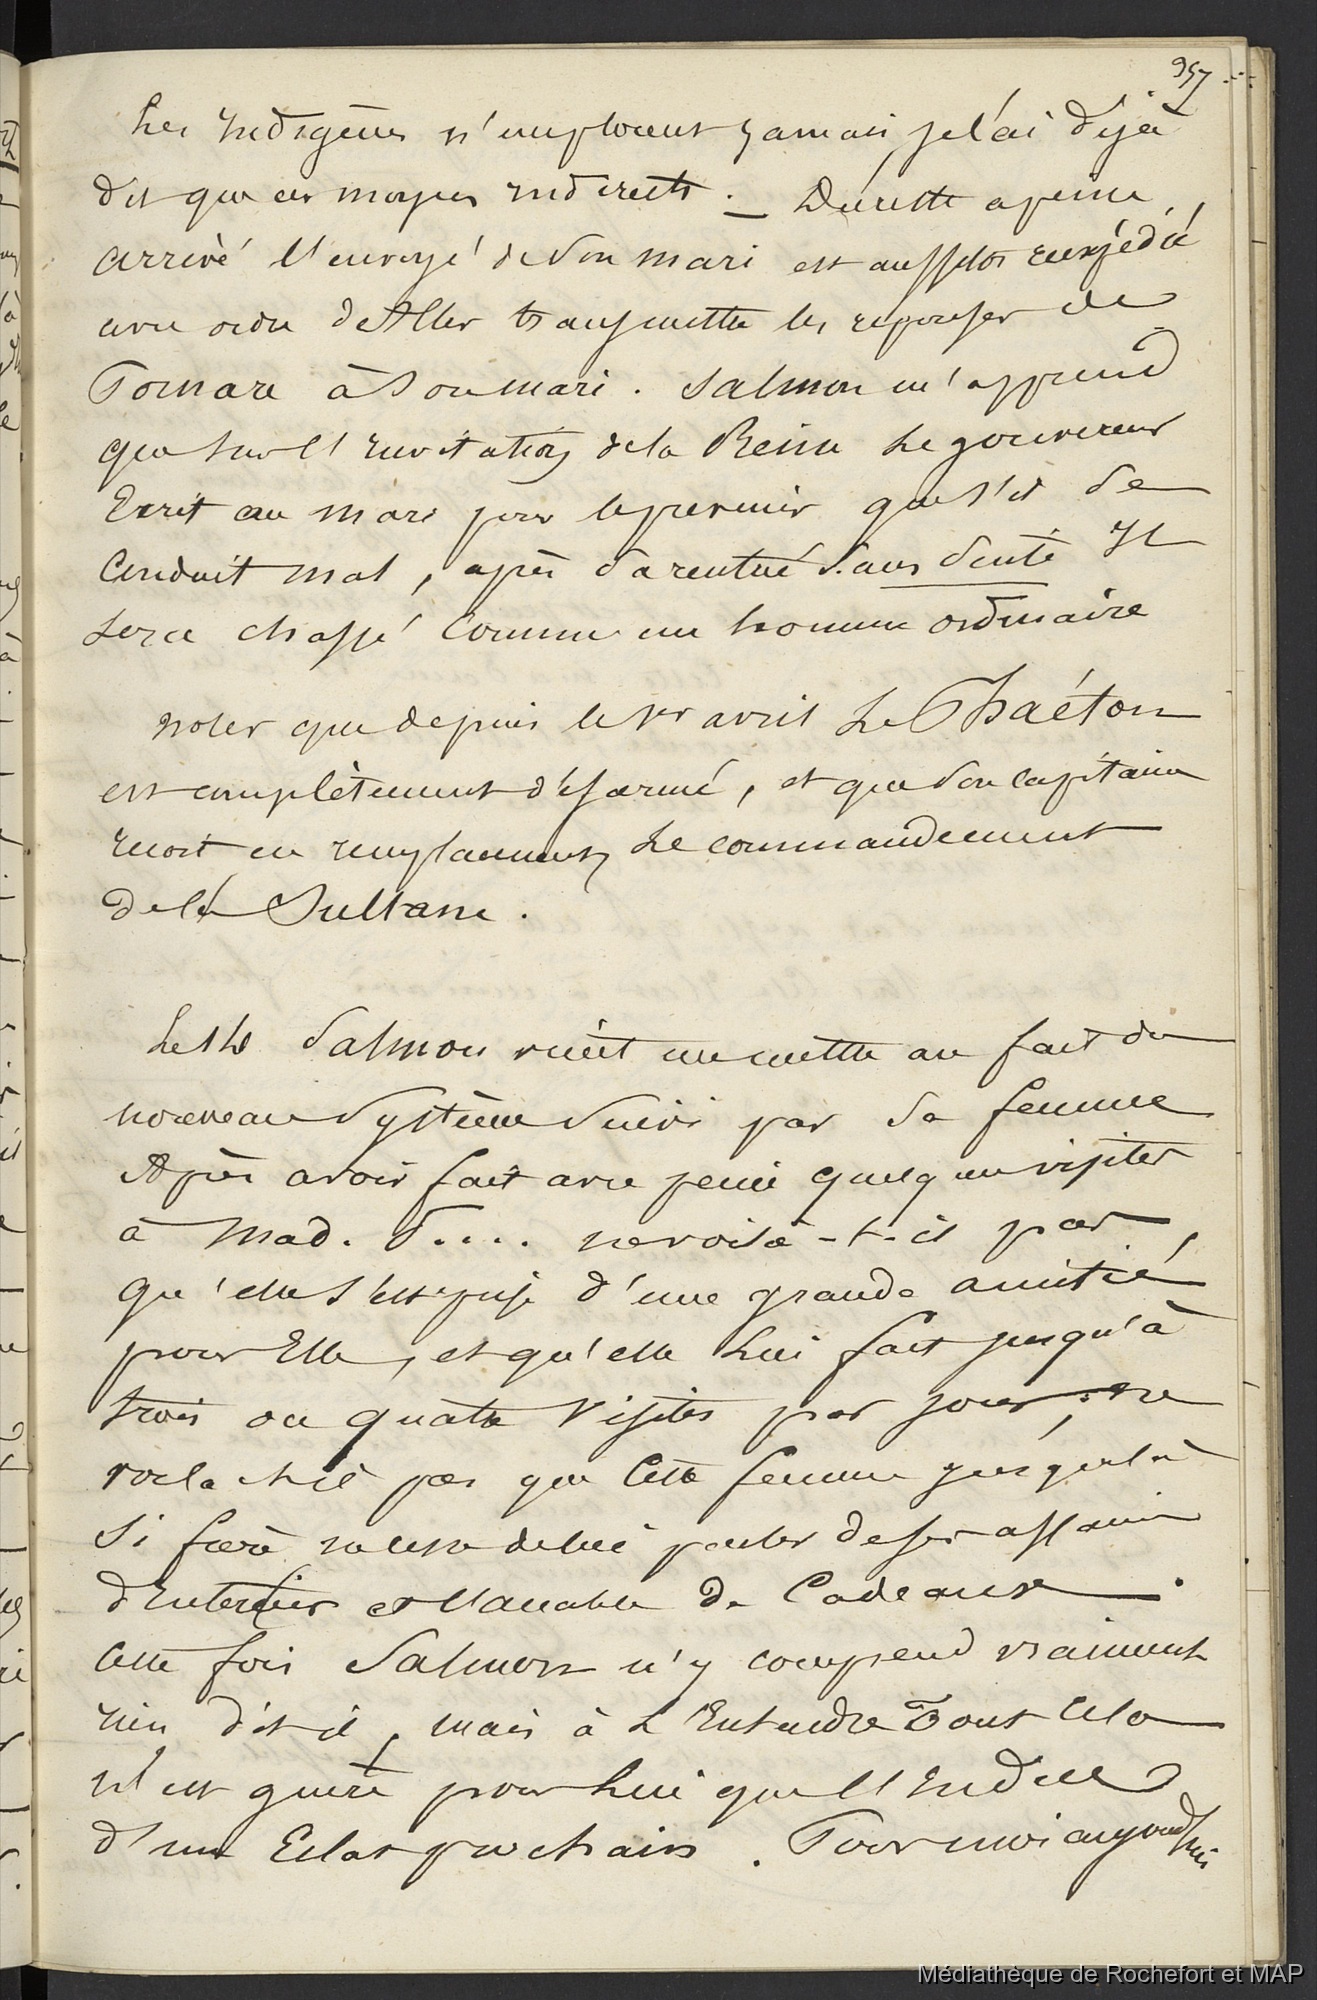 957
Les Indigènes n'emploient jamais, je l'ai déjà
dit que ces moyens indirects. — Darette a peine,
arrivé l'envoyé de son mari est aussitot reexpédié
avec ordre de Aller transmettre les reponses de
Pomare à son mari. Salmon m'apprend
que sur l'invitation de la Reine le gouverneur
Ecrit au mari pour le prevenir que s'il se
Conduit mal, après sa rentrée sans doute Il
sera chassé comme un homme ordinaire
noter que depuis le 1er avril Le Phaéton
est complètement désarmé, et que son capitaine
recoit en remplacement le commandement
de la Sultane.
Le 16 Salmon vient me mettre au fait du
nouveau système suivi par sa femme
Après avoir fait avec peine quelque visites
à Mad. S.... ne voilà-t-il pas,
qu'elle s'est prise d'une grande amitié
pour Elle, et qu'elle lui fait jusqu'à
trois ou quatre visites par jour. ne
voila t'il pas que Cette femme jusque là
si fière ne cesse de lui parler de ses affaires
d'Intérieur et l'accable de Cadeaux.
Cette fois Salmon n'y comprend vraiment
rien dit il, mais à L'Entendre Tout Cela
n'est guère pour lui que l'Indice
d'un Eclat prochain. Pour moi aujourd'hui
Médiathèque de Rochefort et MAP